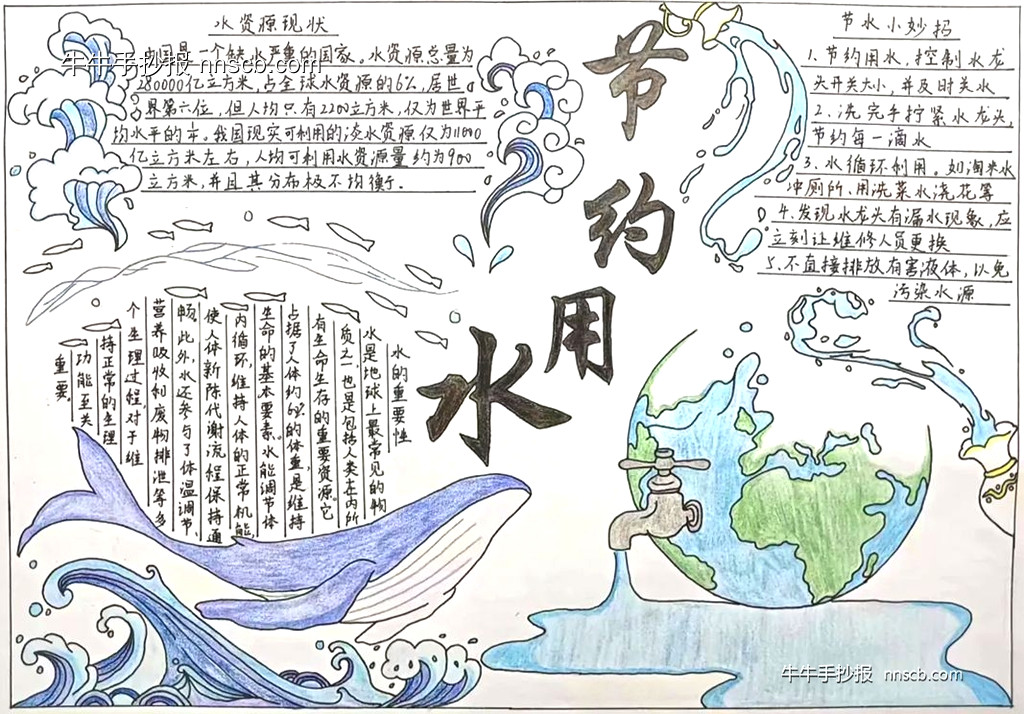 水资源现状
我国是一个缺水严重的国家。水资源总量为
280000亿立方米,占全球水资源的6%,居世
界第六位,但人均只有2200立方米,仅为世界平
均水平的
我国现实可利用的淡水资源仅为11000
亿立方米左右,人均可利用水资源量约为900
立方米,并且其分布极不均衡.
牛牛手抄报 nnscb.com
节约用水
节水小妙招
1.节约用水,控制水龙
头开关大小,并及时关水
2.洗完手拧紧水龙头,
节约每一滴水
3.水循环利用。如淘米水
冲厕所、用洗菜水浇花等
4.发现水龙头有漏水现象,应
立刻让维修人员更换
5.不直接排放有害液体,以免
污染水源
水的重要性
水是地球上最常见的物
质之一,也是包括人类在内所
有生命生存的重要资源,它
占据了人体约
的体重,是维持
生命的基本要素。水能调节体
内循环,维持人体的正常机能,
使人体新陈代谢流程保持通
畅。此外,水还参与了体温调节、
营养吸收和废物排泄等多
个生理过程,对于维
持正常的生理
功能至关
重要。
牛牛手抄报 nnscb.com